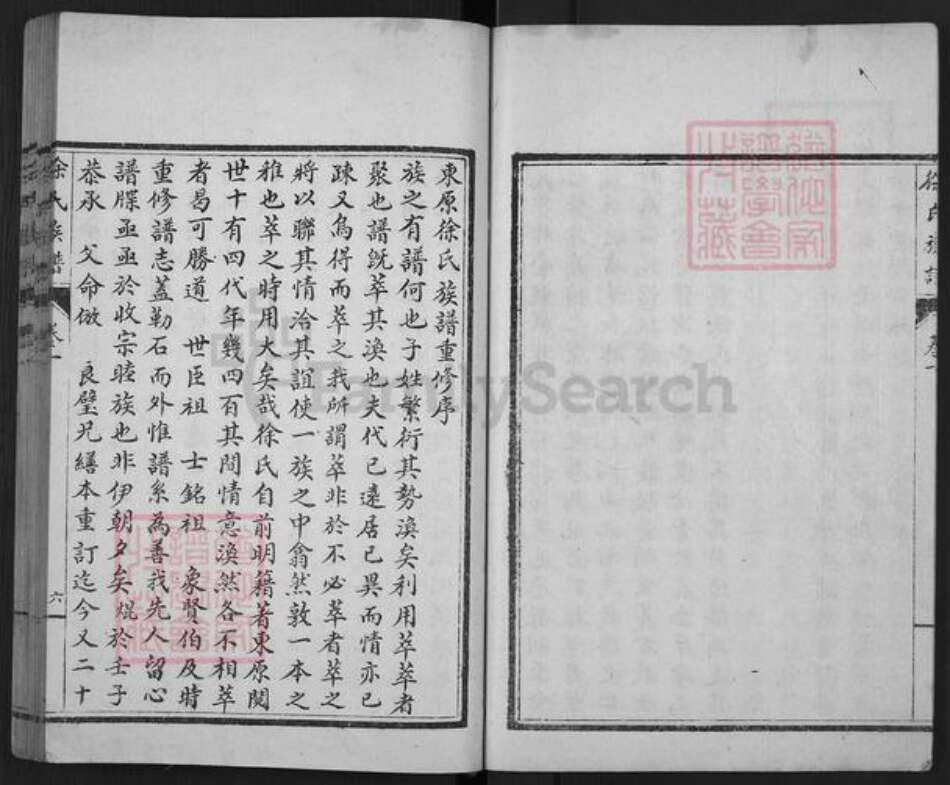 徐氏族譜 卷一
東原徐氏族譜重修序
族之有譜何也子姓繁衍其勢渙矣利用萃萃者
聚也譜旣萃其渙也夫代已遠居已異而情亦已
疎又烏得而萃之我所謂萃非於不必萃者萃之
將以聯其情洽其誼使一族之中翕然敦一本之
雅也萃之時用大矣哉徐氏自前明籍著東原閱
世十有四代年幾四百其間情意渙然各不相萃
者曷可勝道 世臣祖 士銘祖 象賢伯及時
重修譜志蓋勒石而外惟譜系為善我先人留心
譜牒亟亟於收宗睦族也非伊朝夕矣焜於壬子
恭承 父命倣 良璧兄繕本重訂迄今又二十
徐氏族譜 卷一 六
FamilySearch